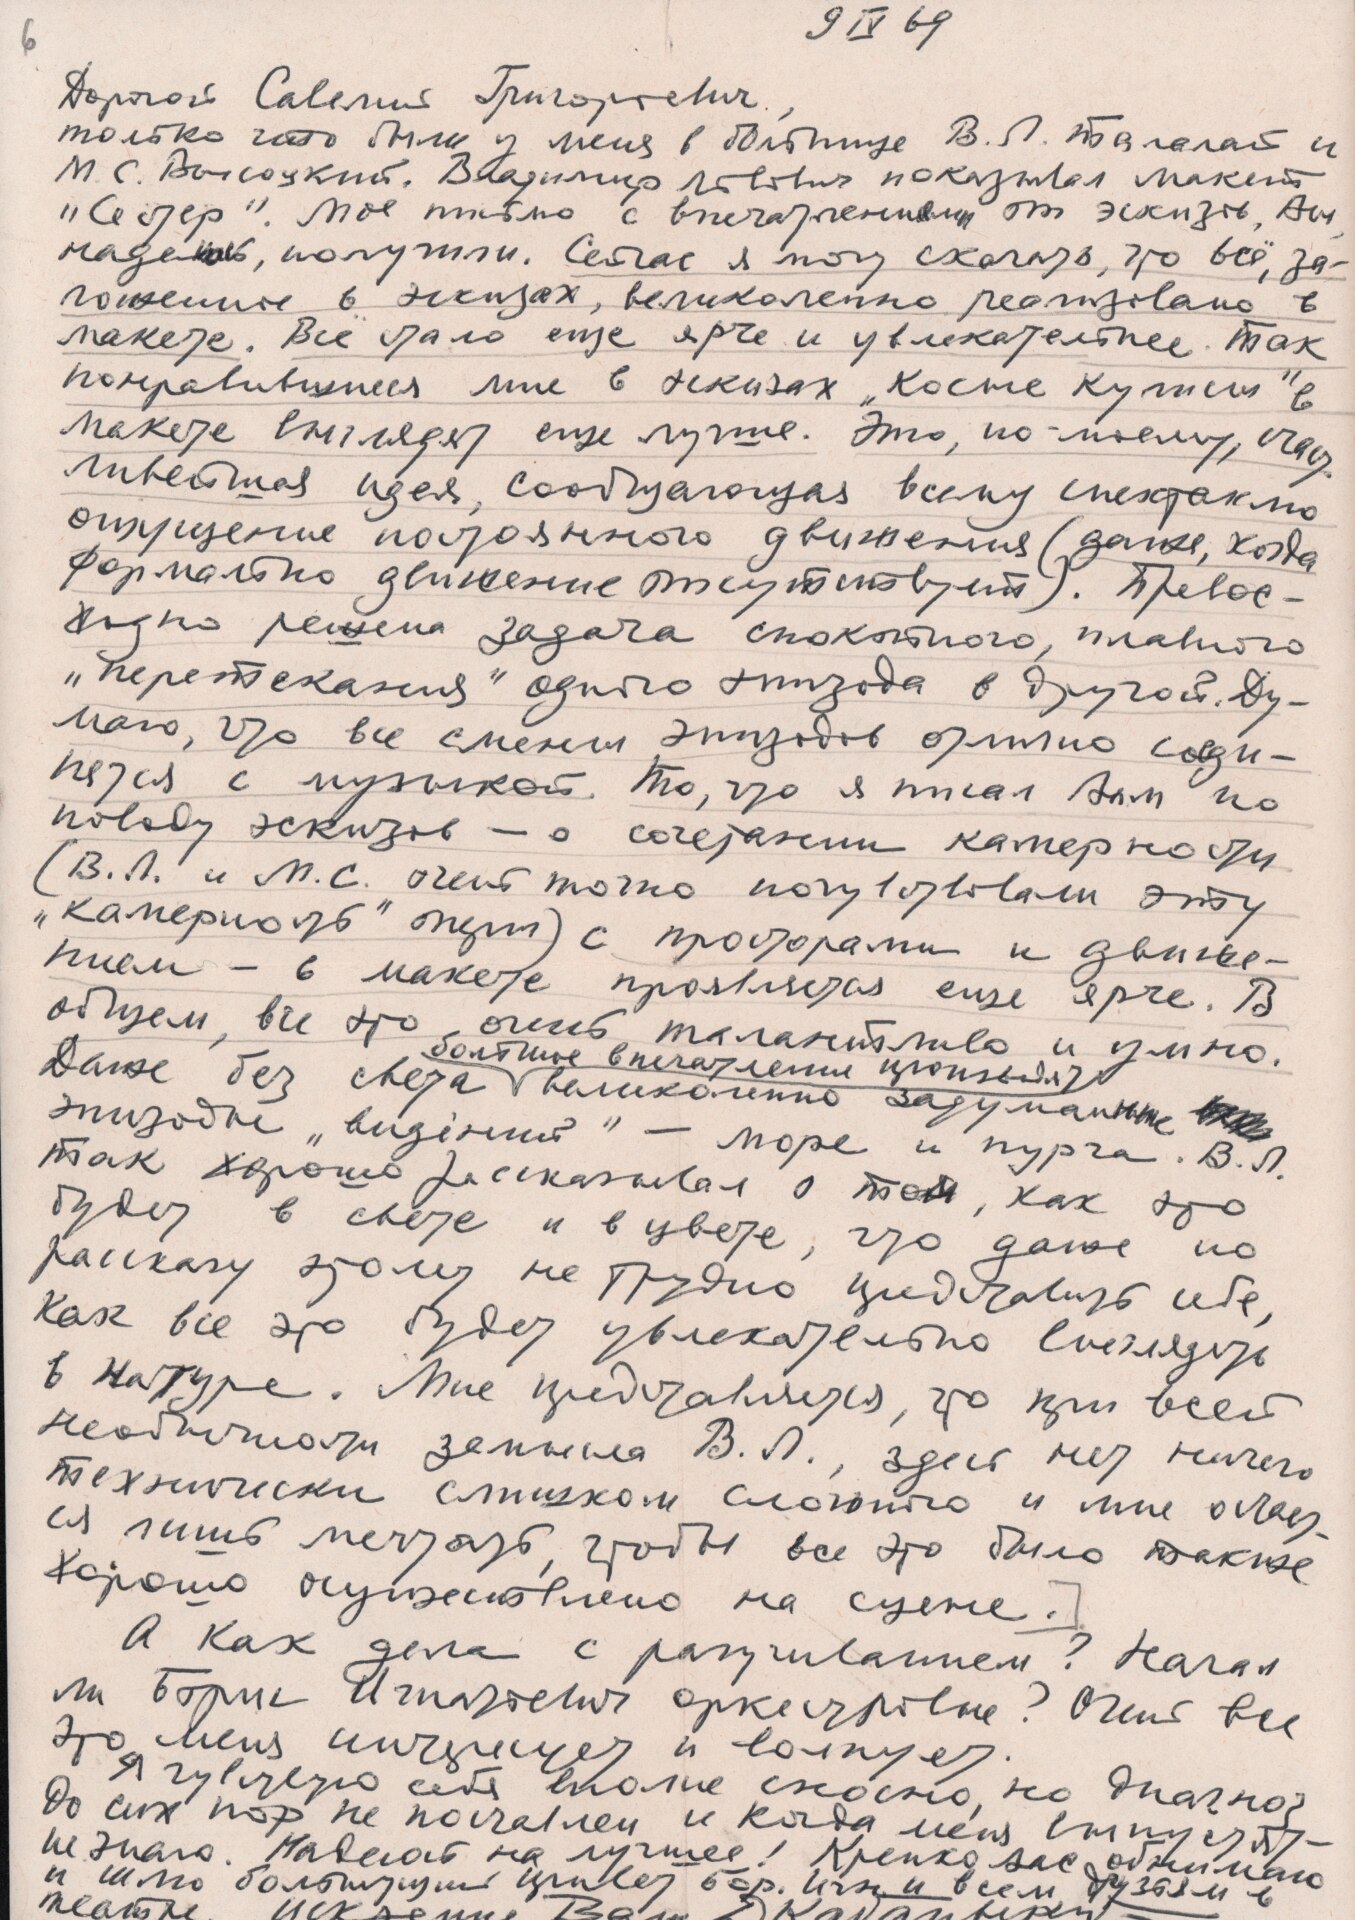 6
9 IV 69
Дорогой Савелий Григорьевич,
только что были у меня в больнице В.Л. Талалай и
М.С. Высоцкий. Владимир Львович показывал макет
"Сестер". Мое письмо с впечатлениями от эскизов, Вы,
надеюсь, получили. Сейчас я могу сказать, что всё, за-
ложенное в эскизах, великолепно реализовано в
макете. Всё стало еще ярче и увлекательнее. Так
понравившиеся мне в эскизах "косые кулисы" в
макете выглядят еще лучше. Это, по-моему, счаст-
ливейшая идея, сообщающая всему спектаклю
ощущение постоянного движения (даже, когда
формально движение отсутствует). Превос-
ходно решена задача спокойного, плавного
"перетекания" одного эпизода в другой. Ду-
маю, что все смены эпизодов отлично соеди-
нятся с музыкой. То, что я писал Вам по
поводу эскизов – о сочетании камерности
(В.Л. и М.С. очень точно почувствовали эту
"камерность" оперы) с просторами и движе-
нием – в макете проявляется еще ярче. В
общем, все это очень талантливо и умно.
большое впечатление производят
Даже без света великолепно задуманные
эпизоды "видений" – море и пурга. В.Л.
так хорошо рассказывал о том, как это
будет в свете и в цвете, что даже по
рассказу этому не трудно представить себе,
как все это будет увлекательно выглядеть
в натуре. Мне представляется, что при всей
необычности замысла В.Л., здесь нет ничего
технически слишком сложного и мне остает-
ся лишь мечтать, чтобы все это было также
хорошо осуществлено на сцене.]
А как дела с разучиванием? Начал
ли Борис Игнатьевич оркестровые? Очень все
это меня интересует и волнует.
Я чувствую себя вполне сносно, но диагноз
до сих пор не поставлен и когда меня выпустят –
не знаю. Надеюсь на лучшее! Крепко Вас обнимаю
и шлю большущий привет Бор. Игн. и всем друзьям в
театре. Искренне Ваш Д Кабалевский